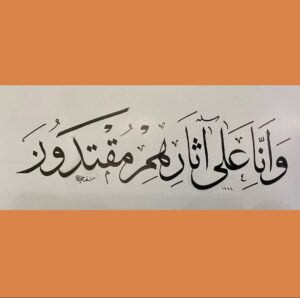 وَانَّا عَلى آثارِهِمْ مُقْتَدُونَ